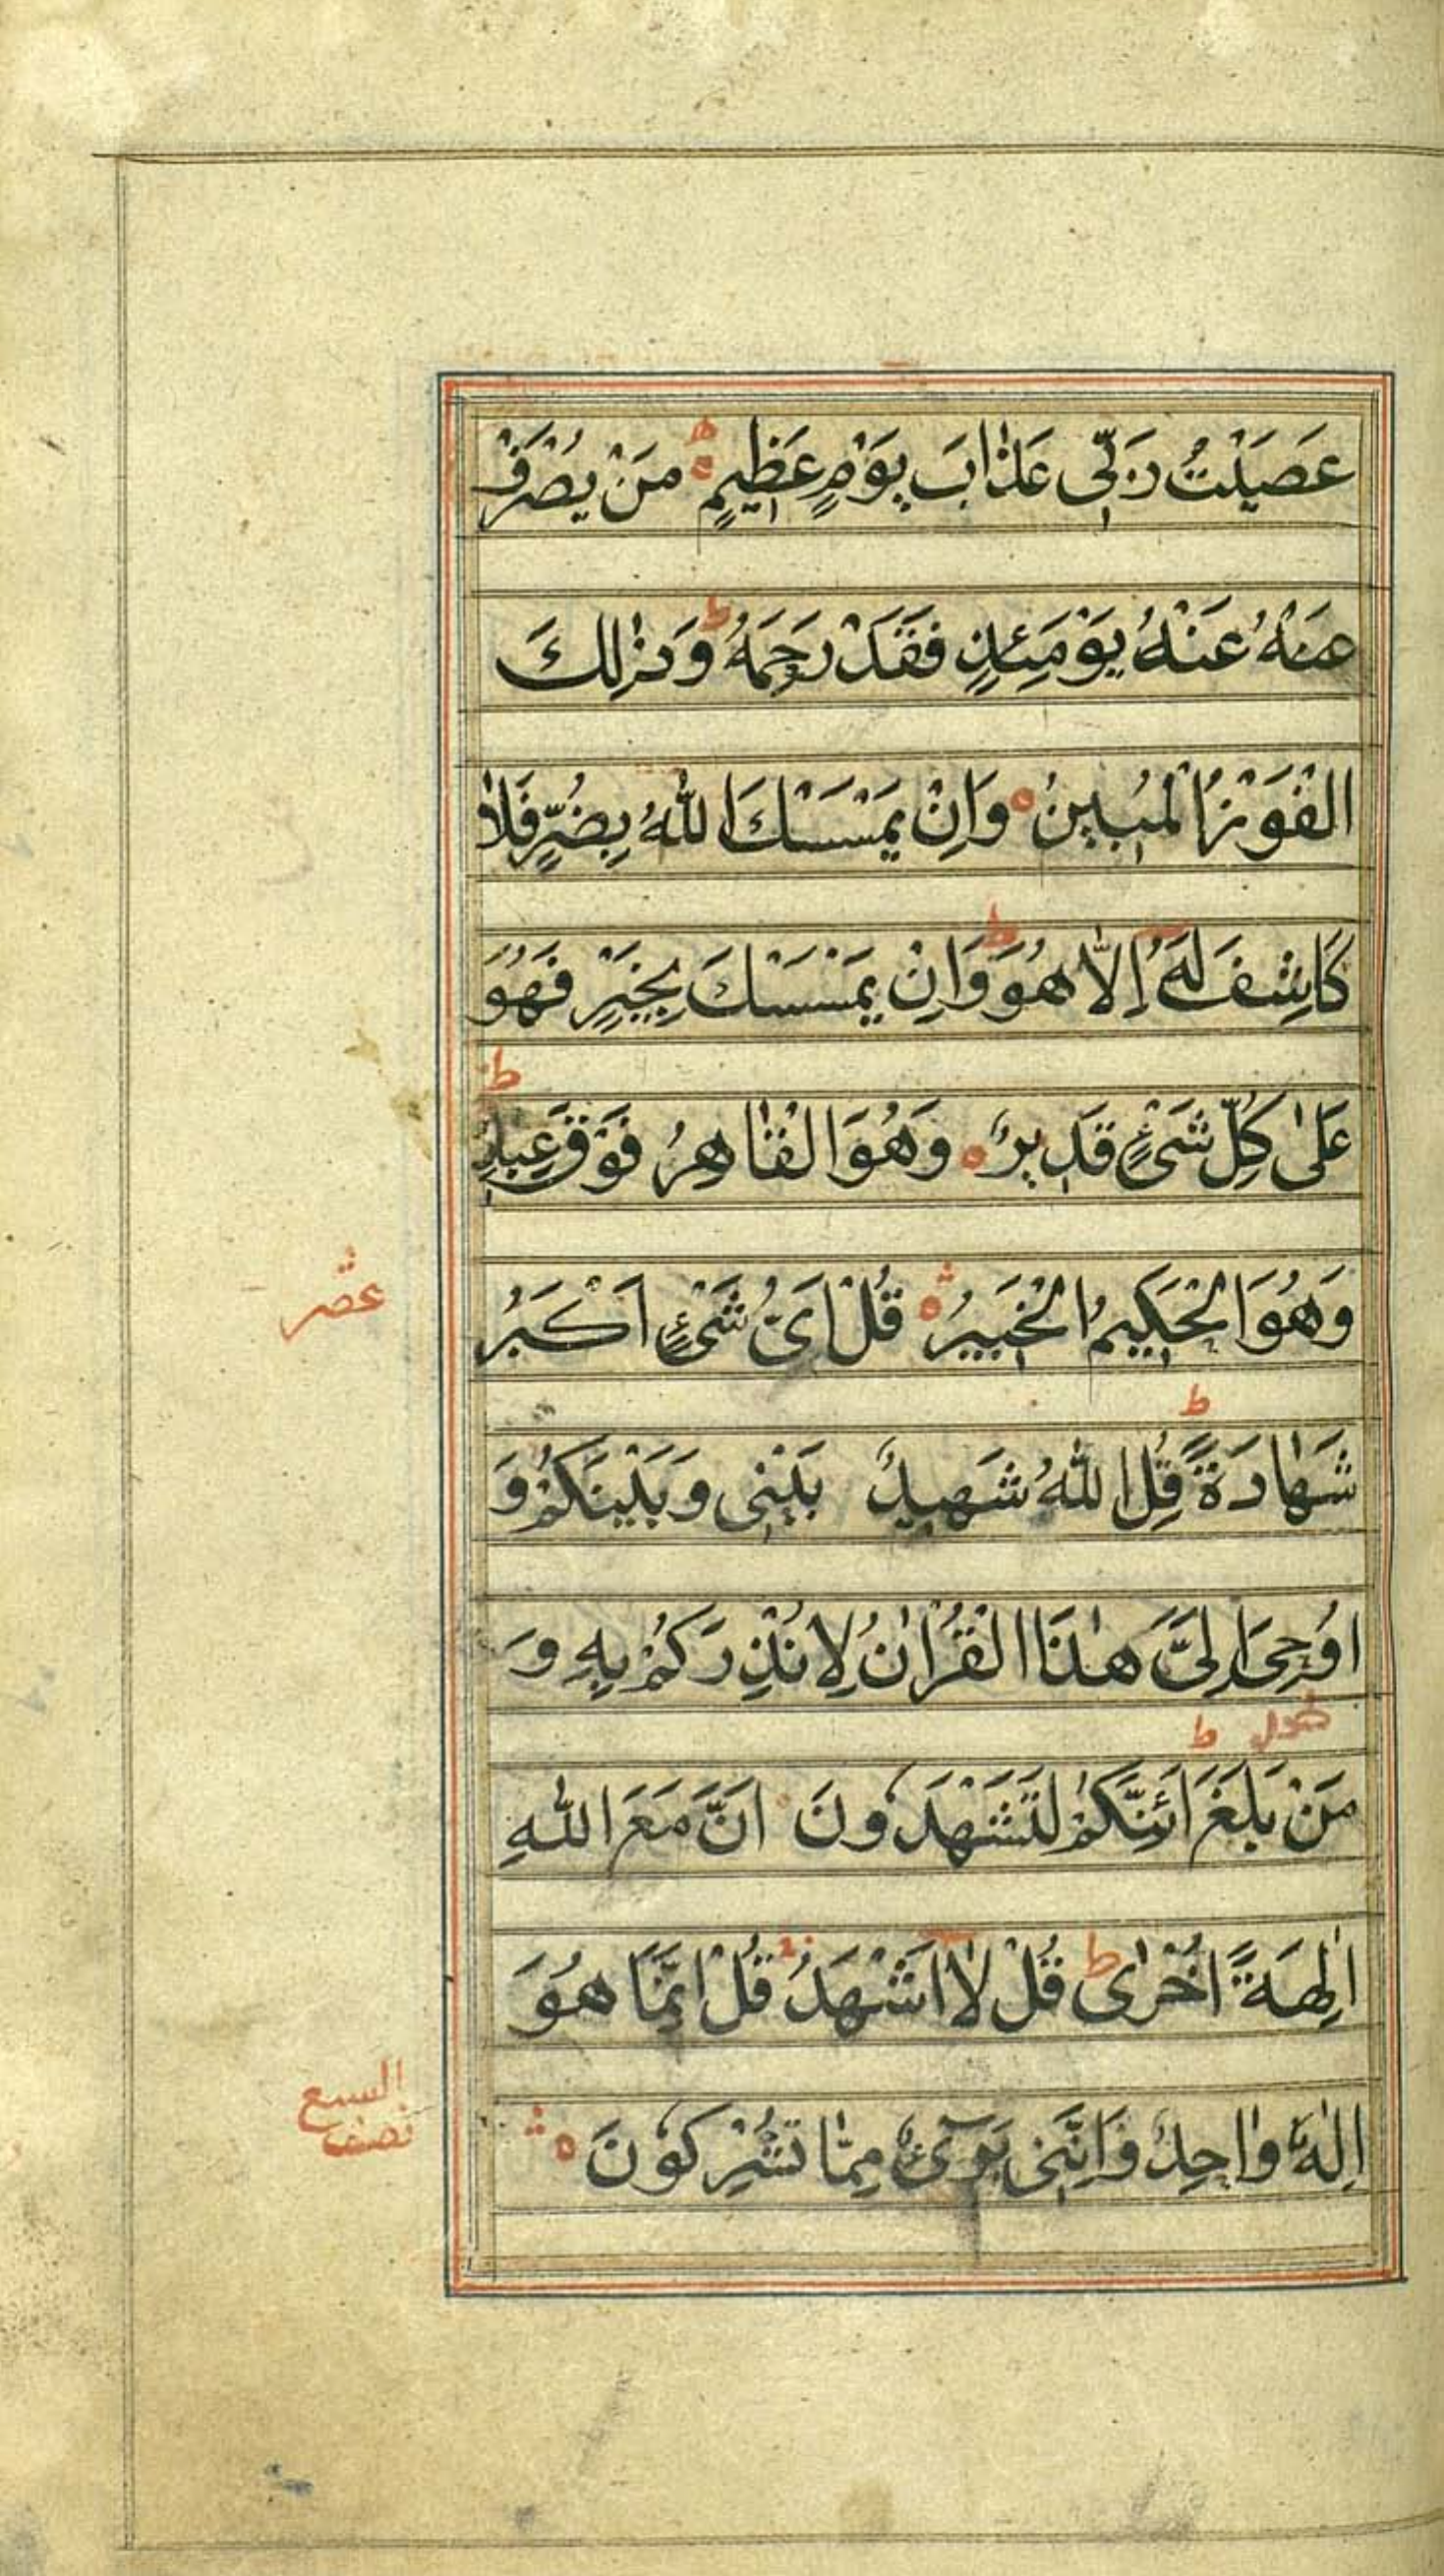 عَصَيْتُ رَبِّى عَذَابَ يَوْمٍ عَظِيمٍ مَنْ يُصْرَفْ
عَنْهُ عَنْهُ يَوْمَئِذٍ فَقَدْ رَحِمَهُ ط وَذٰلِكَ
الْفَوْزُ الْمُبِينُ ه وَاِنْ يَمْسَسْكَ اللّٰهُ بِضُرٍّ فَلَا
كَاشِفَ لَهُ اِلَّا هُوَ ط وَاِنْ يَمْسَسْكَ بِخَيْرٍ فَهُوَ
عَلٰى كُلِّ شَىْءٍ قَدِيرٌ ه وَهُوَ الْقَاهِرُ فَوْقَ عِبَادِهِ ط
وَهُوَ الْحَكِيمُ الْخَبِيرُ ه قُلْ اَىُّ شَىْءٍ اَكْبَرُ
عشر
شَهَادَةً ط قُلِ اللّٰهُ شَهِيدٌ بَيْنِى وَبَيْنَكُمْ وَ
اُوحِىَ اِلَىَّ هٰذَا الْقُرْاٰنُ لِاُنْذِرَكُمْ بِهِ وَ
مَنْ بَلَغَ ط اَئِنَّكُمْ لَتَشْهَدُونَ اَنَّ مَعَ اللّٰهِ
اٰلِهَةً اُخْرٰى ط قُلْ لَا اَشْهَدُ قُلْ اِنَّمَا هُوَ
اِلٰهٌ وَاحِدٌ وَاِنَّنِى بَرِىٓءٌ مِمَّا تُشْرِكُونَ ه
السبع
نصف